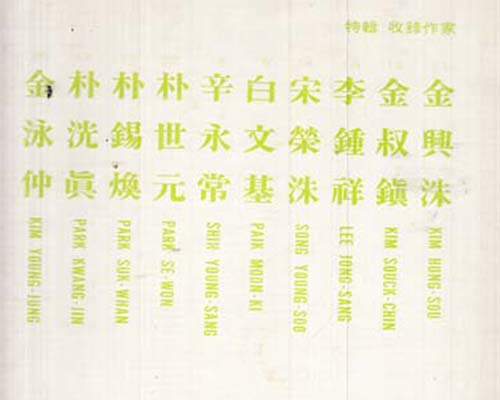 特輯 收錄作家
金興洙 KIM HUNG-SOU
金叔鎭 KIM SOUCK-CHIN
李鍾祥 LEE JONG-SANG
宋榮洙 SONG YOUNG-SOO
白文基 PAIK MOON-KI
辛永常 SHIN YOUNG-SANG
朴世元 PARK SE-WON
朴錫煥 PARK SUK-WHAN
朴洸眞 PARK KWANG-JIN
金泳仲 KIM YOUNG-JUNG